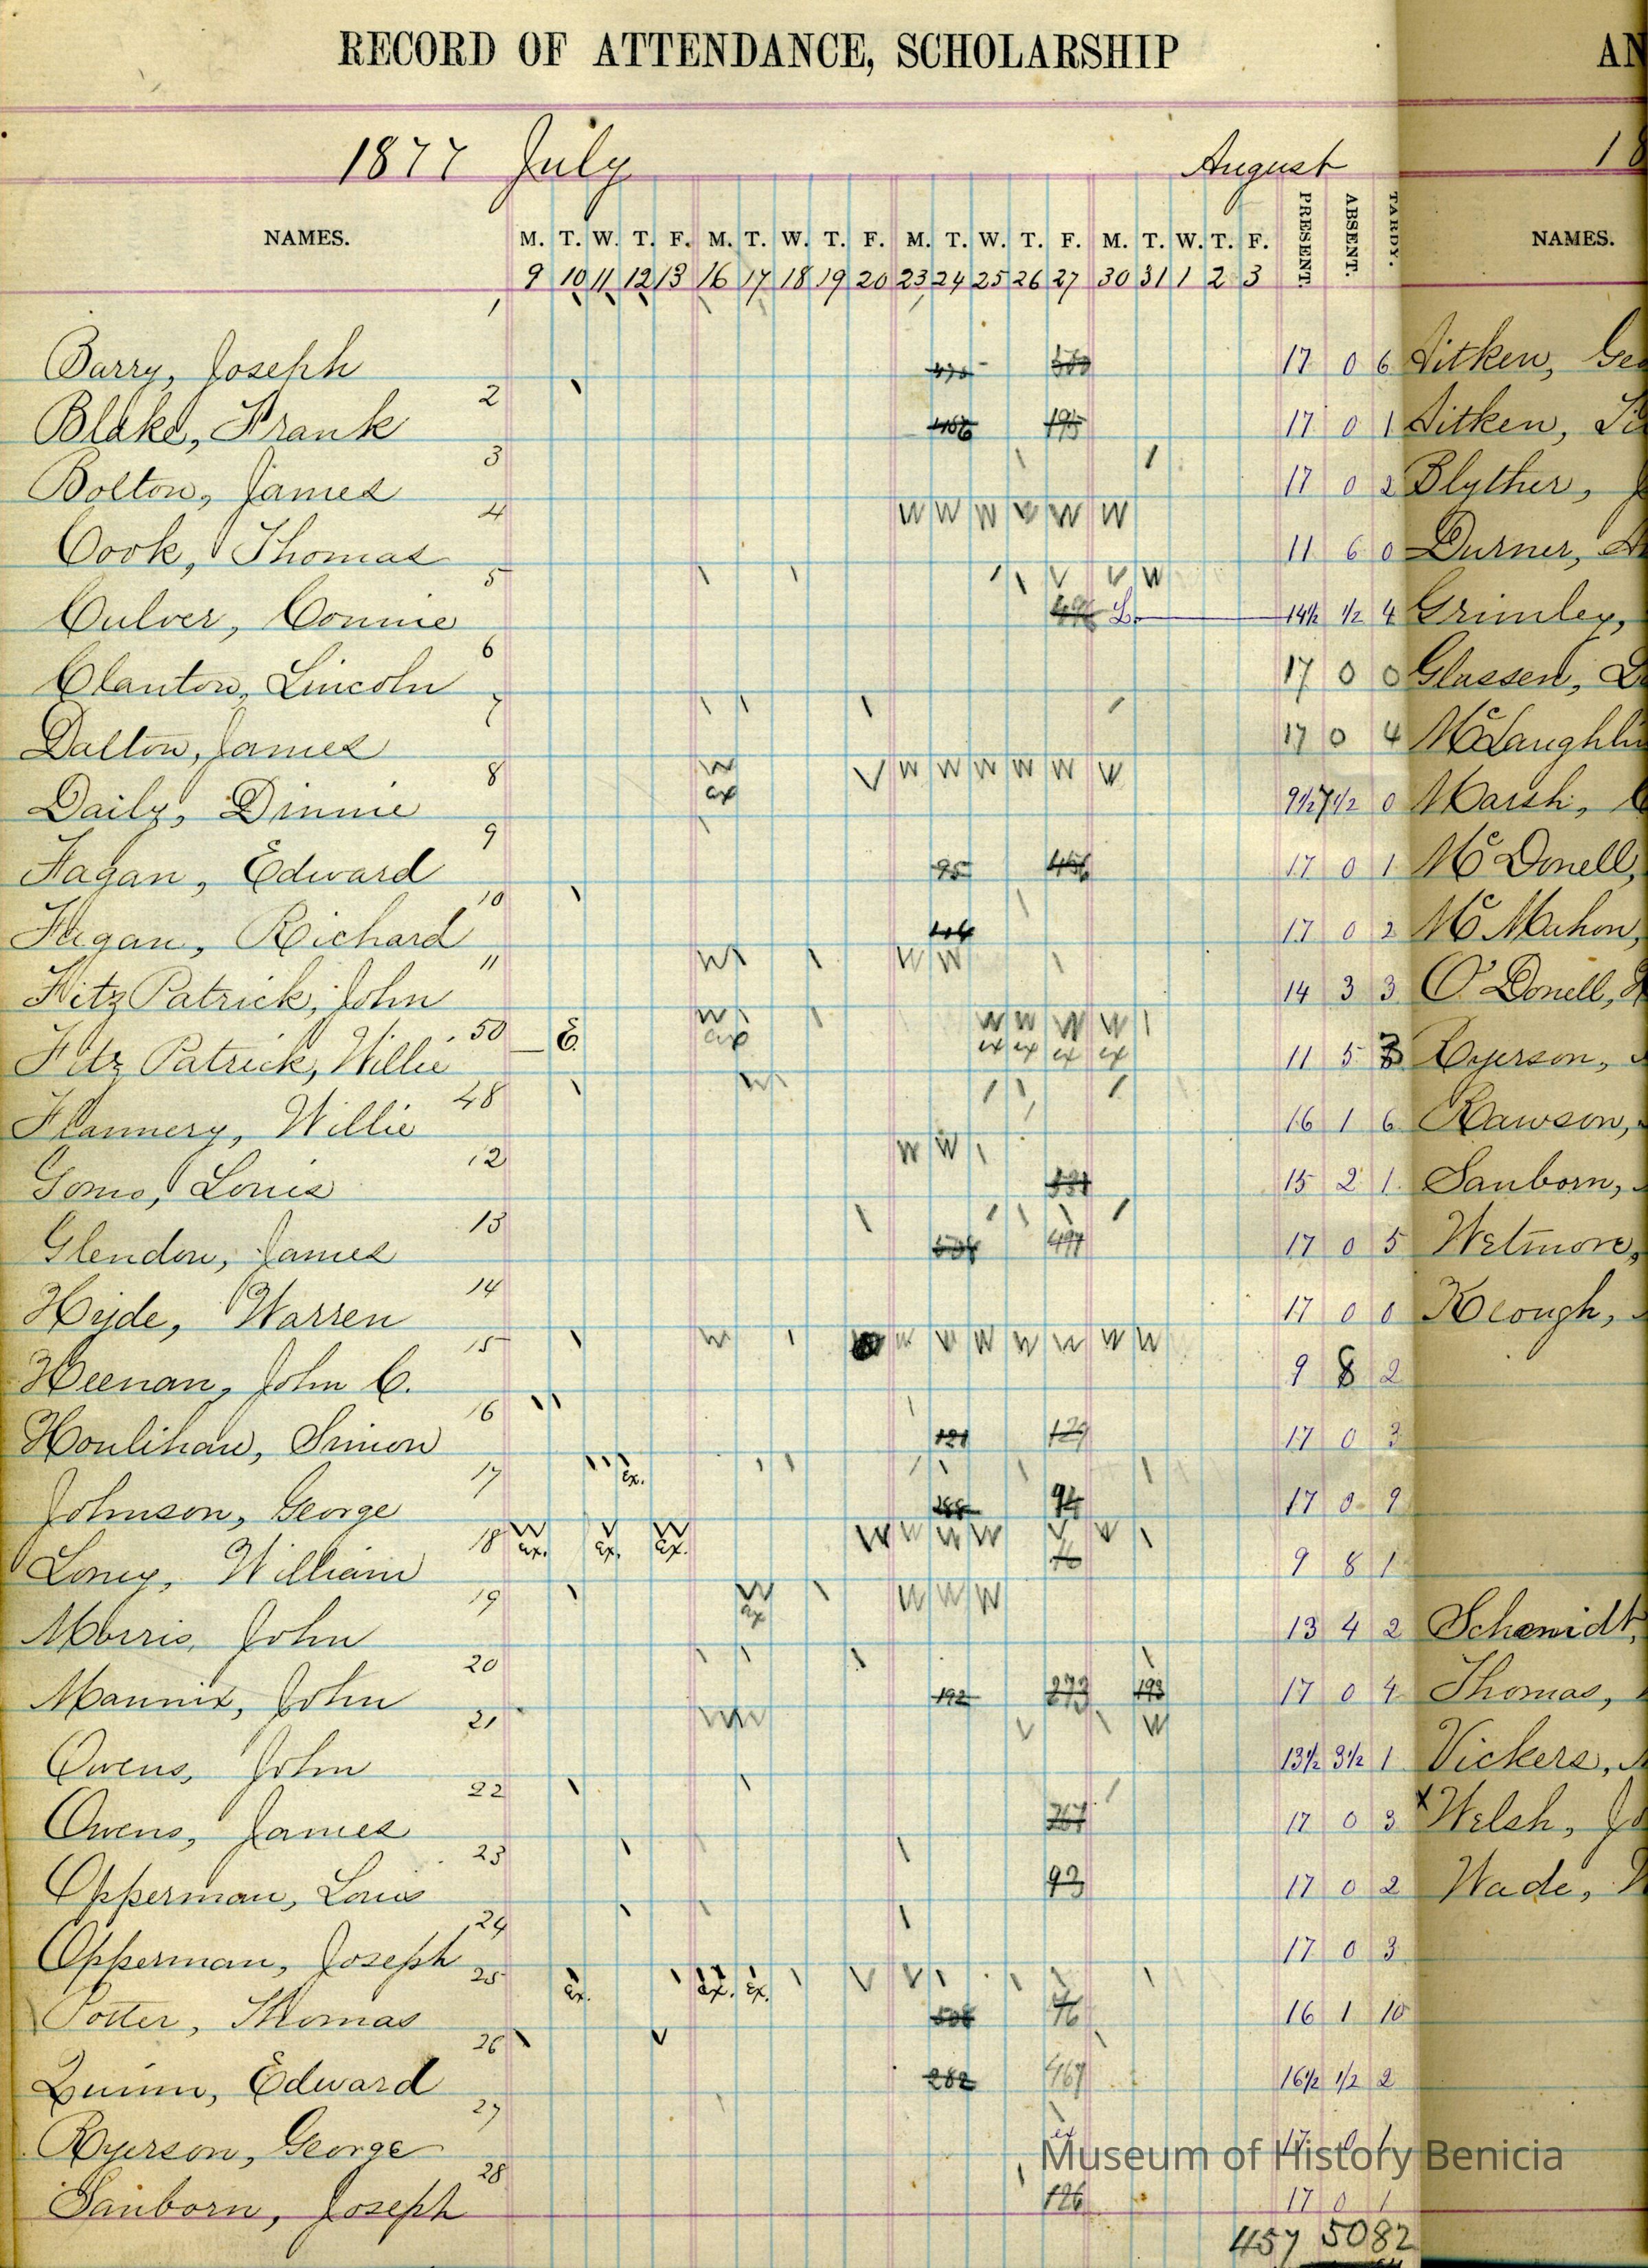 RECORD OF ATTENDANCE, SCHOLARSHIP AN
1877 July August 18
NAMES. M. T. W. T. F. M. T. W. T. F. M. T. W. T. F. M. T. W. T. F. PRESENT. ABSENT. TARDY. NAMES.
9 10 11 12 13 16 17 18 19 20 23 24 25 26 27 30 31 1 2 3
1 Barry, Joseph 17 0 6 Aitken, Geo
2 Blake, Frank 195 17 0 1 Aitken,
3 Bolton, James 17 0 2 Blyther, J
4 Cook, Thomas W W W W W W 11 6 0 Durner,
5 Culver, Connie V V W L. 14 1/2 1/2 4 Grimley,
6 Clanton, Lincoln 17 0 0 Glassen,
7 Dalton, James 17 0 4 McLaughlin
8 Daily, Dinnie W ex V W W W W W W 9 1/2 7 1/2 0 Marsh,
9 Fagan, Edward 95 456 17 0 1 McDonell,
10 Fagan, Richard 17 0 2 McMahon,
11 FitzPatrick, John W W W 14 3 3 O'Donell,
50 Fitz Patrick, Willie E W ex W W W W ex ex ex ex 11 5 3 Ryerson,
48 Flannery, Willie W 16 1 6 Rawson,
12 Gomo, Louis W W 531 15 2 1 Sanborn,
13 Glendon, James 491 17 0 5 Wetmore,
14 Hyde, Warren 17 0 0 Keough,
15 Heenan, John C. W W W W W W W W 9 8 2
16 Houlihan, Simon 121 129 17 0 3
17 Johnson, George Ex. 94 17 0 9
18 Loney, William W Ex. V Ex. W Ex. W W W W V V 9 8 1
19 Morris, John W ex W W W 13 4 2 Schmidt,
20 Mannix, John 192 273 193 17 0 4 Thomas,
21 Owens, John W W V W 13 1/2 3 1/2 1 Vickers,
22 Owens, James 267 17 0 3 x Welsh, Jo
23 Opperman, Louis 93 17 0 2 Wade,
24 Opperman, Joseph 17 0 3
25 Potter, Thomas Ex. Ex. Ex. V V 76 16 1 10
26 Quinn, Edward V 282 467 16 1/2 1/2 2
27 Ryerson, George ex 17 0 1
Museum of History Benicia
28 Sanborn, Joseph 126 17 0 1
457 50 82